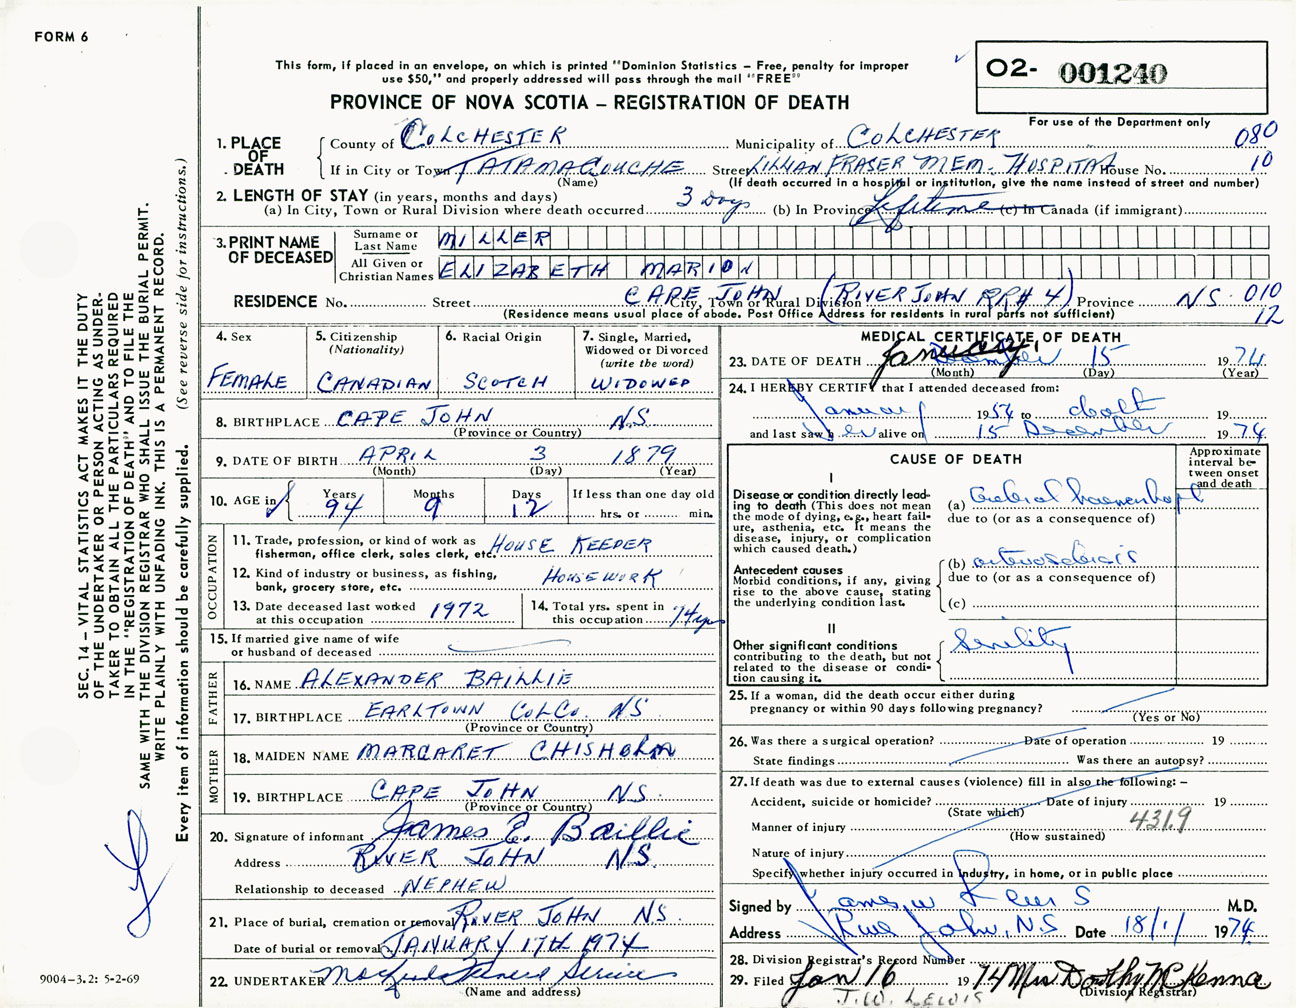 FORM 6
This form, if placed in an envelope, on which is printed "Dominion Statistics – Free, penalty for improper
use $50," and properly addressed will pass through the mail "FREE"
PROVINCE OF NOVA SCOTIA – REGISTRATION OF DEATH
O2- 001240
For use of the Department only
1. PLACE OF DEATH County of COLCHESTER Municipality of COLCHESTER 080
If in City or Town TATAMAGOUCHE Street LILLIAN FRASER MEM. HOSPITAL House No. 10
(Name) (If death occurred in a hospital or institution, give the name instead of street and number)
2. LENGTH OF STAY (in years, months and days)
(a) In City, Town or Rural Division where death occurred 3 Days (b) In Province Lifetime (c) In Canada (if immigrant)
3. PRINT NAME OF DECEASED Surname or Last Name MILLER
All Given or Christian Names ELIZABETH MARION
RESIDENCE No. Street CAPE JOHN City, Town or Rural Division (RIVER JOHN RR# 4) Province NS. 010
(Residence means usual place of abode. Post Office Address for residents in rural parts not sufficient) 12
4. Sex FEMALE
5. Citizenship (Nationality) CANADIAN
6. Racial Origin SCOTCH
7. Single, Married, Widowed or Divorced (write the word) WIDOWED
8. BIRTHPLACE CAPE JOHN N.S.
(Province or Country)
9. DATE OF BIRTH APRIL 3 1879
(Month) (Day) (Year)
10. AGE in Years 94 Months 9 Days 12 If less than one day old hrs. or min.
OCCUPATION
11. Trade, profession, or kind of work as fisherman, office clerk, sales clerk, etc. HOUSE KEEPER
12. Kind of industry or business, as fishing, bank, grocery store, etc. HOUSEWORK
13. Date deceased last worked at this occupation 1972
14. Total yrs. spent in this occupation 74 yrs
15. If married give name of wife or husband of deceased
FATHER
16. NAME ALEXANDER BAILLIE
17. BIRTHPLACE EARLTOWN COL CO. NS
(Province or Country)
MOTHER
18. MAIDEN NAME MARGARET CHISHOLM
19. BIRTHPLACE CAPE JOHN NS.
(Province or Country)
20. Signature of informant James E. Baillie
Address RIVER JOHN N.S.
Relationship to deceased NEPHEW
21. Place of burial, cremation or removal RIVER JOHN NS.
Date of burial or removal JANUARY 17TH 1974
22. UNDERTAKER Service
(Name and address)
MEDICAL CERTIFICATE OF DEATH
23. DATE OF DEATH January 15 1974
(Month) (Day) (Year)
24. I HEREBY CERTIFY that I attended deceased from:
January 1954 to death 19
and last saw her alive on 15 December 1974
CAUSE OF DEATH
Approximate interval between onset and death
I
Disease or condition directly leading to death (This does not mean the mode of dying, e.g., heart failure, asthenia, etc. It means the disease, injury, or complication which caused death.)
(a) Cerebral haemorrhage
due to (or as a consequence of)
Antecedent causes
Morbid conditions, if any, giving rise to the above cause, stating the underlying condition last.
(b) arteriosclerosis
due to (or as a consequence of)
(c)
II
Other significant conditions contributing to the death, but not related to the disease or condition causing it.
Senility
25. If a woman, did the death occur either during pregnancy or within 90 days following pregnancy?
(Yes or No)
26. Was there a surgical operation? Date of operation 19
State findings Was there an autopsy?
27. If death was due to external causes (violence) fill in also the following: –
Accident, suicide or homicide? Date of injury 19
(State which)
Manner of injury 431.9
(How sustained)
Nature of injury
Specify whether injury occurred in industry, in home, or in public place
Signed by James W M.D.
Address River John, N.S Date 18/1/ 1974
28. Division Registrar's Record Number
29. Filed Jan 16 1974 Mrs Dorothy McKenna
(Division Registrar)
J.W. LEWIS
SEC. 14 – VITAL STATISTICS ACT MAKES IT THE DUTY
OF THE UNDERTAKER OR PERSON ACTING AS UNDER-
TAKER TO OBTAIN ALL THE PARTICULARS REQUIRED
IN THE "REGISTRATION OF DEATH" AND TO FILE THE
SAME WITH THE DIVISION REGISTRAR WHO SHALL ISSUE THE BURIAL PERMIT.
WRITE PLAINLY WITH UNFADING INK. THIS IS A PERMANENT RECORD.
Every item of information should be carefully supplied. (See reverse side for instructions.)
9004-3.2: 5-2-69